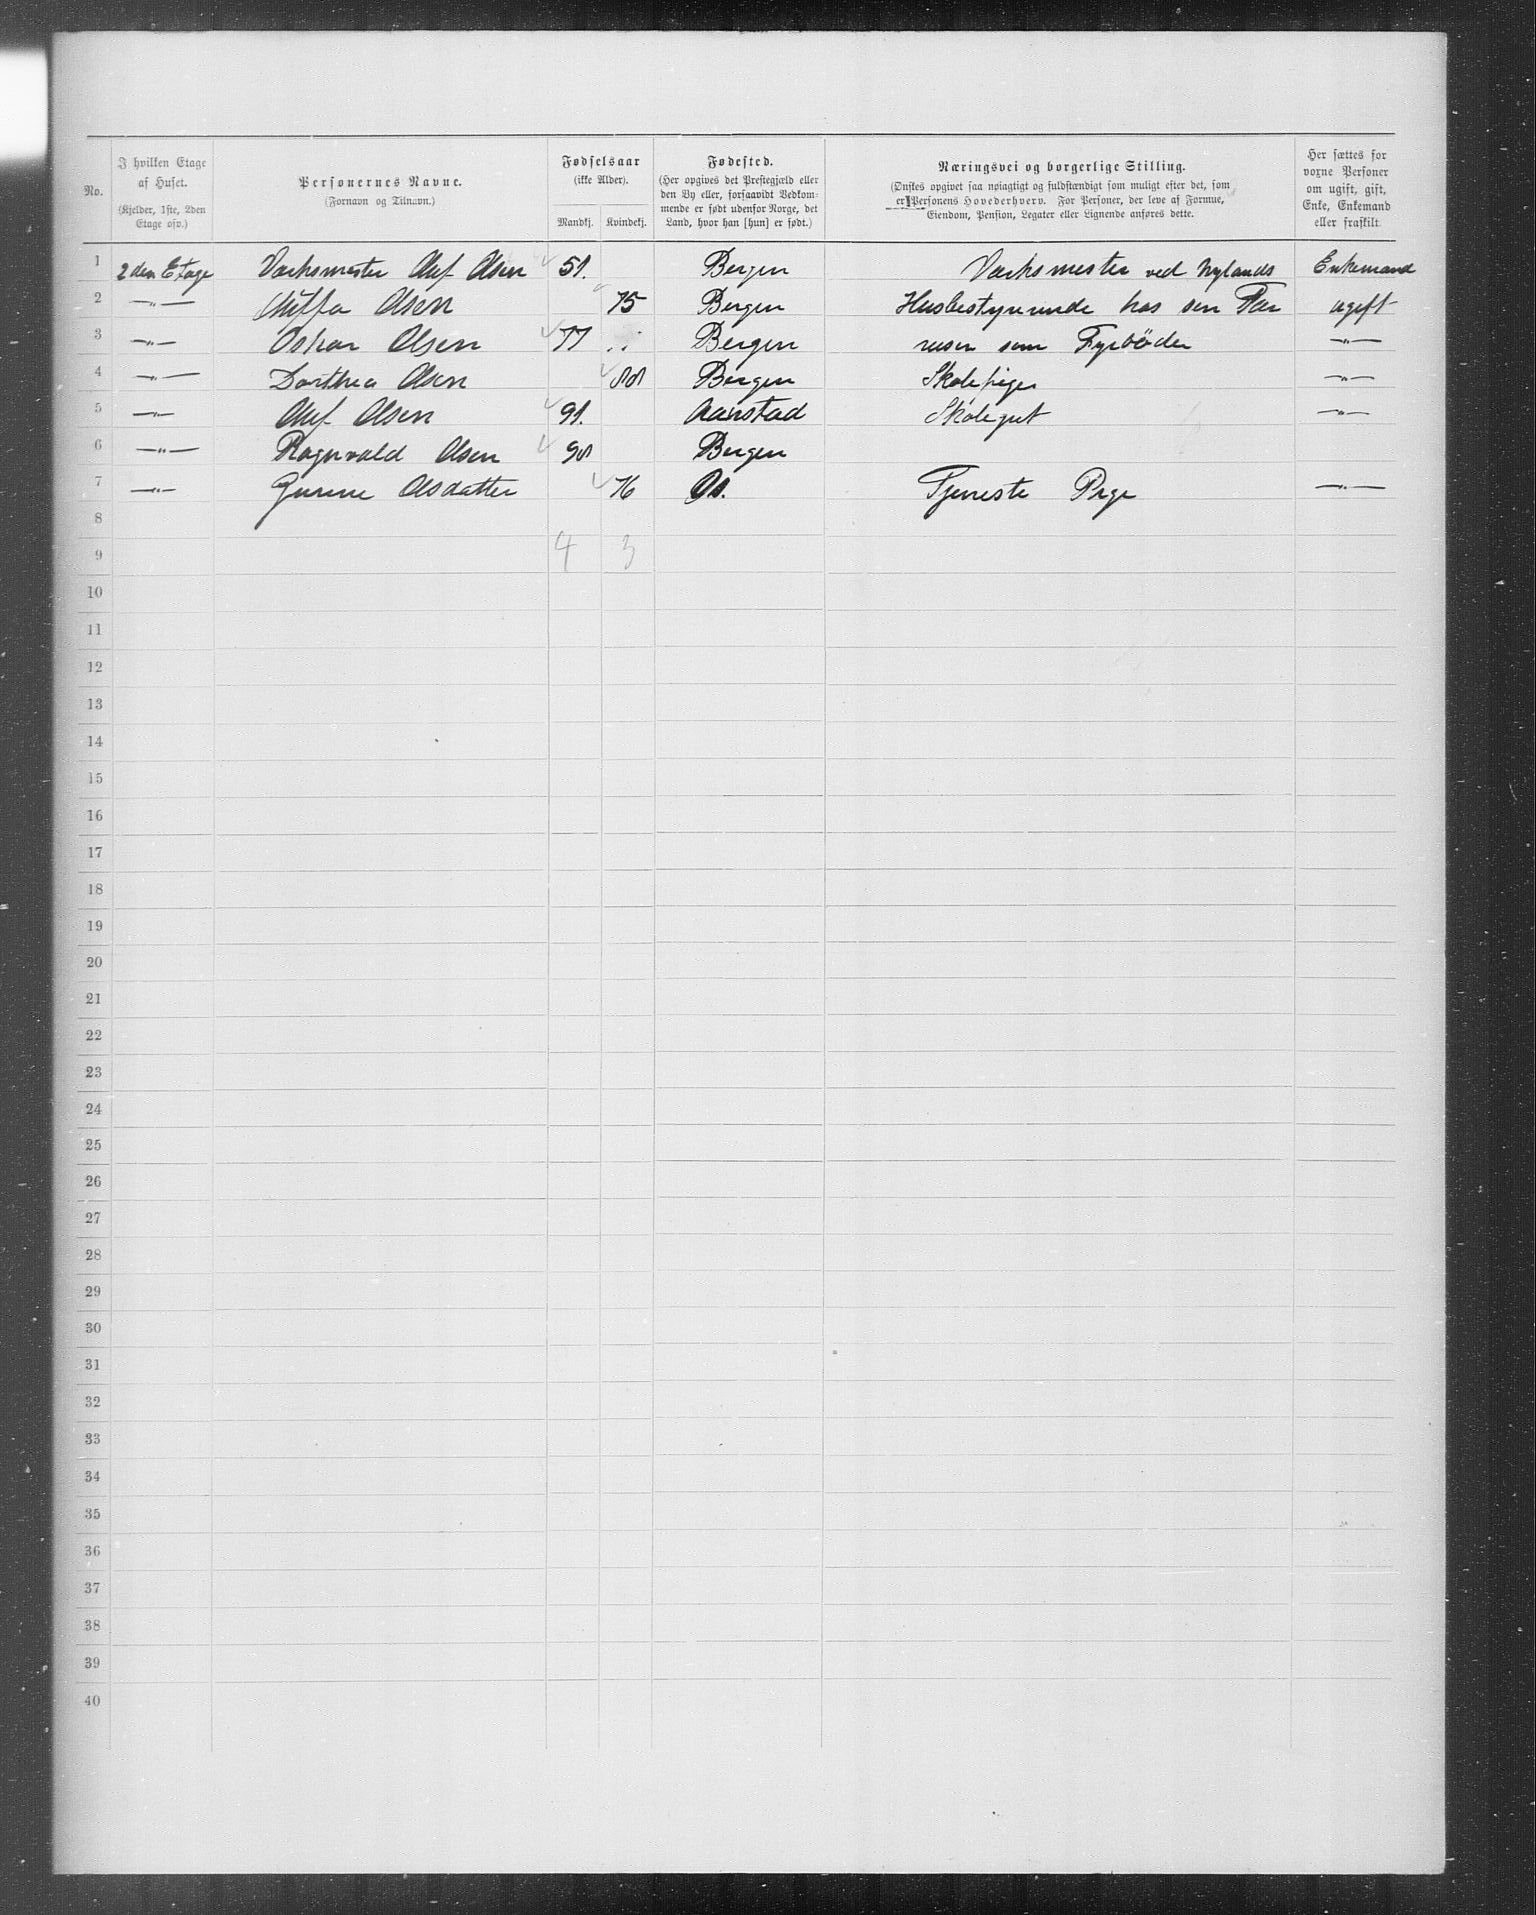 No.
I hvilken Etage af Huset.
(Kjelder, 1ste, 2den Etage osv.)
Personernes Navne.
(Fornavn og Tilnavn.)
Fødselsaar
(ikke Alder).
Mandkj. Kvindekj.
Fødested.
(Her opgives det Prestegjæld eller
den By eller, forsaavidt Vedkom-
mende er født udenfor Norge, det
Land, hvor han [hun] er født.)
Næringsvei og borgerlige Stilling.
(Ønskes opgivet saa nøiagtigt og fuldstændigt som muligt efter det, som
er Personens Hovederhverv. For Personer, der leve af Formue,
Eiendom, Pension, Legater eller Lignende anføres dette.
Her sættes for
voxne Personer
om ugift, gift,
Enke, Enkemand
eller fraskilt.
1 2den Etage Værksmester Oluf Olsen 51. Bergen Værksmester ved Nylands Enkemand
2 —„— Olsen 75 Bergen Husbestyrerinde hos sen Far ugift
3 —„— Oskar Olsen 77 Bergen reiser som Fyrböder —„—
4 —„— Dorthea Olsen 88 Bergen Skolepige —„—
5 —„— Oluf Olsen 91. Aanstad Skolegut —„—
6 —„— Ragnvald Olsen 98 Bergen
7 —„— Olsdatter 76 Os. Tjeneste Pige —„—
8
9 4 3
10
11
12
13
14
15
16
17
18
19
20
21
22
23
24
25
26
27
28
29
30
31
32
33
34
35
36
37
38
39
40